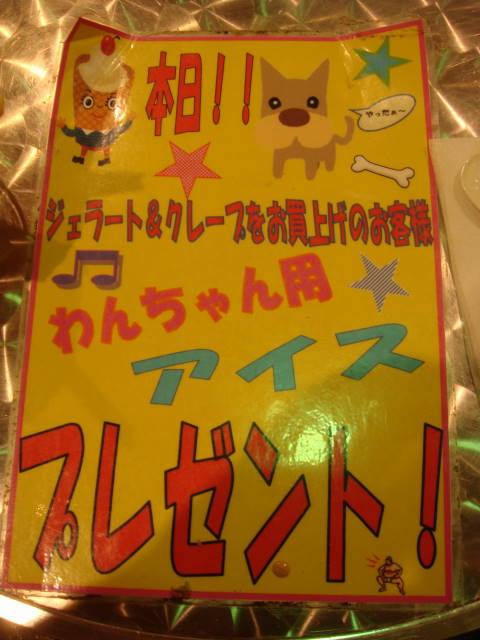 本日！！
やったぁ～
ジェラート&クレープをお買上げのお客様
わんちゃん用
アイス
プレゼント！